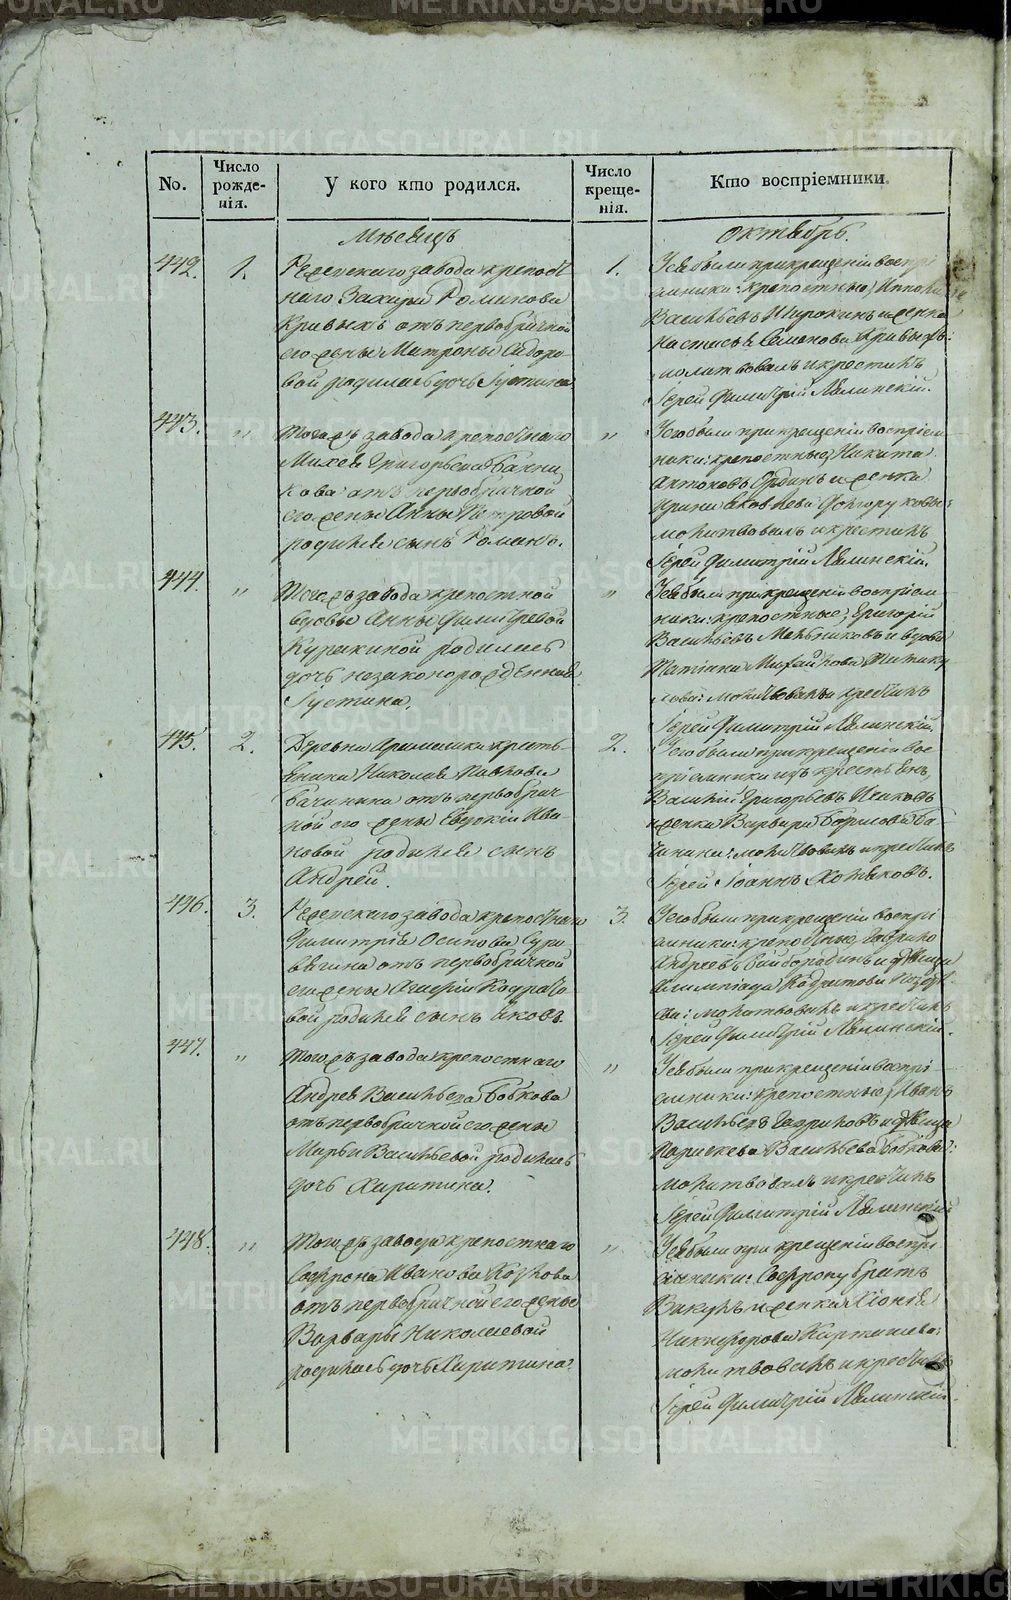 METRIKI.GASO-URAL.RU
No.
Число рожденія.
У кого кто родился.
Число крещенія.
Кто воспріемники.
Мѣсяцъ
Октябрь.
442.
1.
Режевскаго завода крепост
наго Захара Романова
Кривыхъ отъ первобрачной
его жены Матроны Сидоро-
вой родилась дочь Іустина
1.
Ея были при крещеніи воспрі
емники: крепостные
Васильевъ Широкинъ и женка
Настасья Семенова Кривыхъ:
молитвовалъ и крестилъ
Іерей Димитрій Лялинскій.
443.
"
Тогожъ завода крепостнаго
Михея Григорьева
отъ первобрачной
его жены Анны Петровой
родился сынъ Романъ.
"
Его были при крещеніи воспріем-
ники: крепостные Никита
Антоновъ и женка
Ирина Яковлева
молитвовалъ и крестилъ
Іерей Димитрій Лялинскій.
444.
"
Тогожъ завода крепостной
вдовы Анны Димитревой
Куракиной родилась
дочь незаконорожденная
Іустина.
"
Ея были при крещеніи воспріем-
ники: крепостные Григорій
Васильевъ Мельниковъ и вдова
Татіана Михайлова
молитвовалъ и крестилъ
Іерей Димитрій Лялинскій.
445.
2.
Деревни крестья-
янина Николая Павлова
Бачинина отъ первобрач-
ной его жены Евдокіи Ива-
новой родился сынъ
Андрей.
2.
Его были при крещеніи вос-
пріемники изъ крестьянъ
Василій Григорьевъ Исаковъ
и женка Варвара Ба-
чинина: молитвовалъ и крестилъ
Іерей Іоаннъ Хотяковъ.
446.
3.
Режевскаго завода крепостнаго
Димитрія Осипова
отъ первобрачной
его жены Агафіи Кодрато-
вой родился сынъ Яковъ.
3.
Его были при крещеніи воспрі
емники: крепостные Гаврило
Андреевъ и дѣвица
Олимпіада Кодратова
молитвовалъ и крестилъ
Іерей Димитрій Лялинскій.
447.
"
Тогожъ завода крепостнаго
Андрея Васильева Бобкова
отъ первобрачной его жены
Марьи Васильевой родилась
дочь Харитина.
"
Ея были при крещеніи воспрі
емники: крепостные Иванъ
Васильевъ и дѣвица
Параскева Васильева Бобкова:
молитвовалъ и крестилъ
Іерей Димитрій Лялинскій
448.
"
Тогожъ завода крепостнаго
Софрона Иванова Козлова
отъ первобрачной его жены
Варвары Николаевой
родилась дочь Харитина.
"
Ея были при крещеніи воспрі
емники: Софрону братъ
Викулъ и женка Хіонія
Никифорова Карташева:
молитвовалъ и крестилъ
Іерей Димитрій Лялинскій.